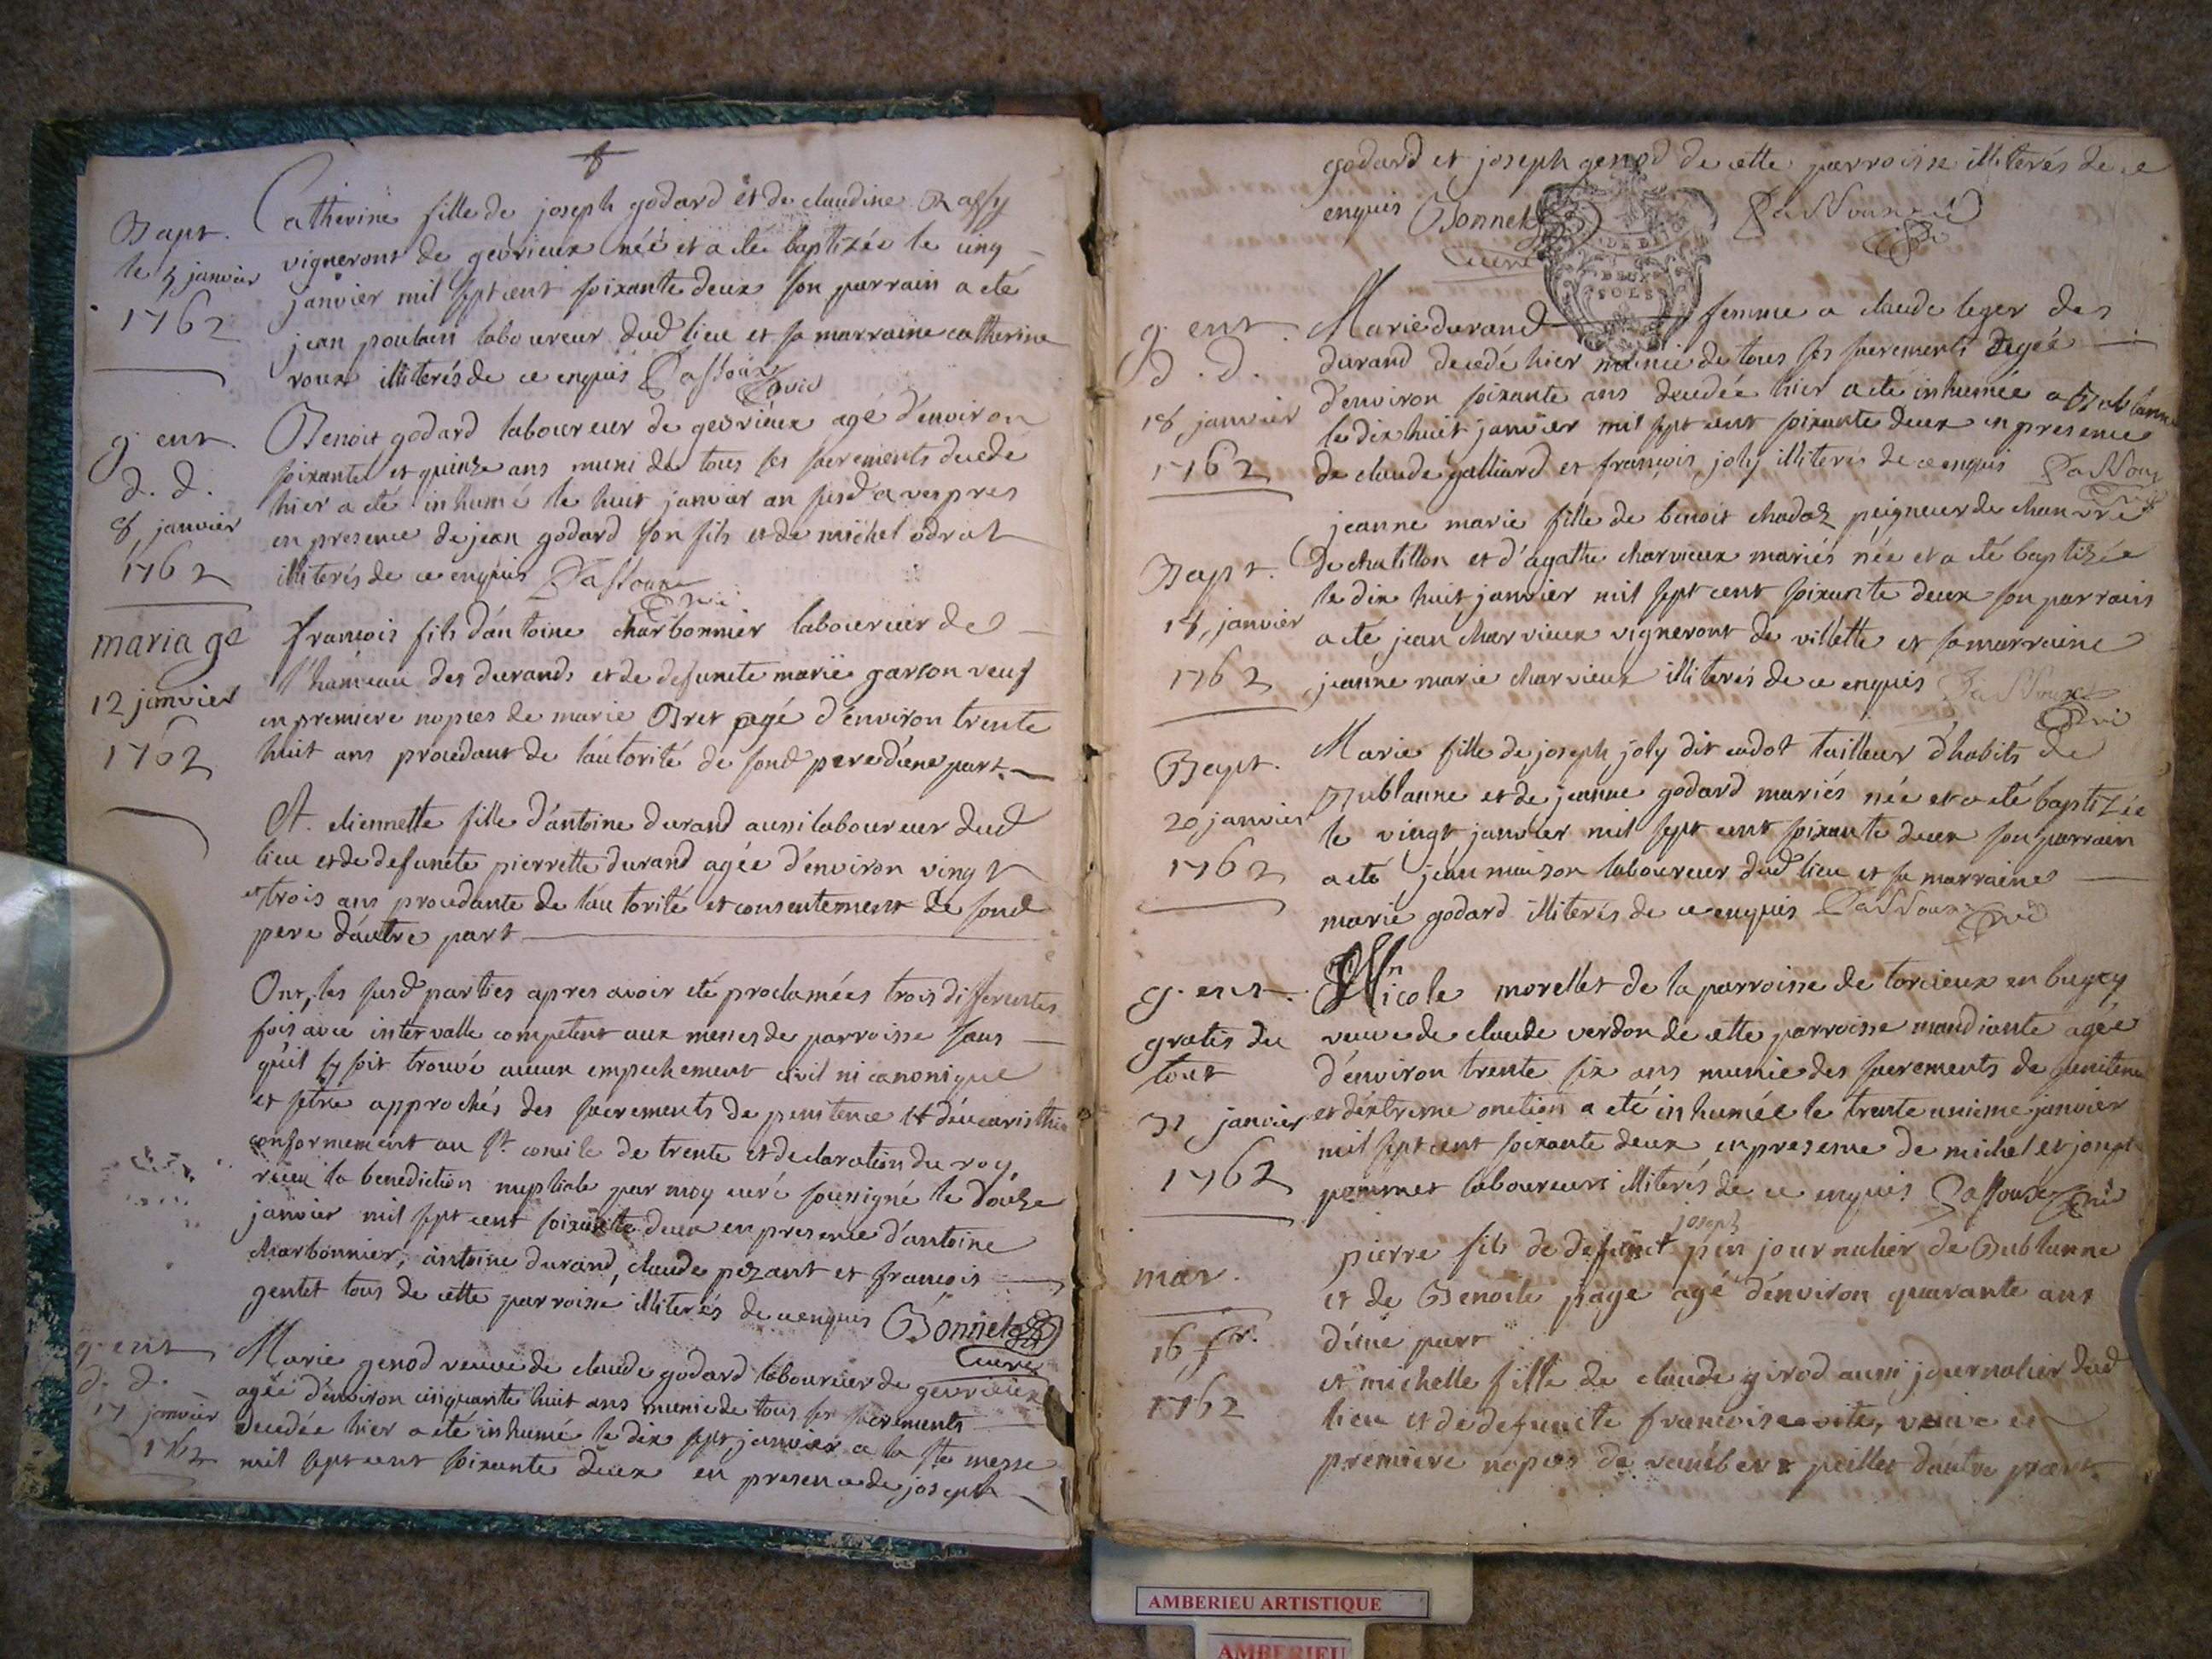 Bapt.
le 5 janvier
1762
Catherine fille de joseph godard et de claudine Raffy
vigneront de gevrieux née et a été baptizée le cinq
janvier mil sept cent soixante deux son parrain a eté
jean poulain laboureur dud lieu et sa marraine catherine
roux illiterés de ce enquis
g. ent.
d. d.
8 janvier
1762
Benoit godard laboureur de gevrieux agé d'environ
soixante et quinze ans muni de tous ses sacrements decedé
hier a eté inhumé le huit janvier an susd a vespres
en presence de jean godard son fils et de michel
illiterés de ce enquis
mariage
12 janvier
1762
françois fils d'antoine charbonnier laboureur de
l'hameau des durands et de defuncte marie garson veuf
en premiere nopces de marie Bret agé d'environ trente
huit ans procedant de l'autorité de sond pere d'une part
Et. etiennette fille d'antoine durand aussi laboureur dud
lieu et de defuncte pierrette durand agée d'environ vingt
et trois ans procedante de l'autorité et consentement de sond
pere d'autre part
Ont, les susd parties apres avoir été proclamées trois differentes
fois avec intervalle competent aux messes de parroisse sans
qu'il sy soit trouvé aucun empechement civil ni canonique
et s'etre approchés des sacrements de penitence et d'eucaristhie
conformement au st. concile de trente et declaration du roy,
recu la benediction nuptiale par moy curé soussigné le douze
janvier mil sept cent soixante deux en presence d'antoine
charbonnier, antoine durand, claude pezant et françois
gentet tous de cette parroisse illiterés de ce enquis Bonnet
curé
g. ent
d. d.
17 janvier
1762
Marie genod veuve de claude godard laboureur de gevrieux
agée d'environ cinquante huit ans munie de tous ses sacrements
decedée hier a eté inhumé le dix sept janvier a la ste messe
mil sept cent soixante deux en presence de joseph
godard et joseph genod de cette parroisse illiterés de ce
enquis Bonnet
curé
DEUX
SOLS
g. ent.
d. d.
18 janvier
1762
Marie durand femme a claude leger des
durand decedé hier munie de tous ses sacrements agée
d'environ soixante ans decedée hier a eté inhumée a Bublanne
le dix huit janvier mil sept cent soixante deux en presence
de claude galliard et françois joly illiterés de ce enquis
Bapt.
18 janvier
1762
jeanne marie fille de benoit chadoz peigneur de chanvre
de chatillon et d'agathe charvieux mariés née et a eté baptizée
le dix huit janvier mil sept cent soixante deux son parrain
a eté jean charvieux vigneront de villette et sa marraine
jeanne marie charvieux illiterés de ce enquis
Bapt.
20 janvier
1762
Marie fille de joseph joly dit cadot tailleur d'habits de
Bublanne et de jeanne godard mariés née et a eté baptizée
le vingt janvier mil sept cent soixante deux son parrain
a eté jean maison laboureur dud lieu et sa marraine
marie godard illiterés de ce enquis
g. ent.
gratis du
tout
31 janvier
1762
Nicole morellet de la parroisse de torcieux en bugey
veuve de claude verdon de cette parroisse mandiante agée
d'environ trente six ans munie des sacrements de penitence
et d'extreme onction a eté inhumée le trente unieme janvier
mil sept cent soixante deux en presence de michel et joseph
pommet laboureurs illiterés de ce enquis
mar.
16 fr.
1762
joseph
pierre fils de defunct pin journalier de Bublanne
et de Benoite page agé d'environ quarante ans
d'une part
et michelle fille de claude girod aussi journalier dud
lieu et de defuncte francoise veuve en
premiere nopces de peillet d'autre part
AMBERIEU ARTISTIQUE
AMBERIEU